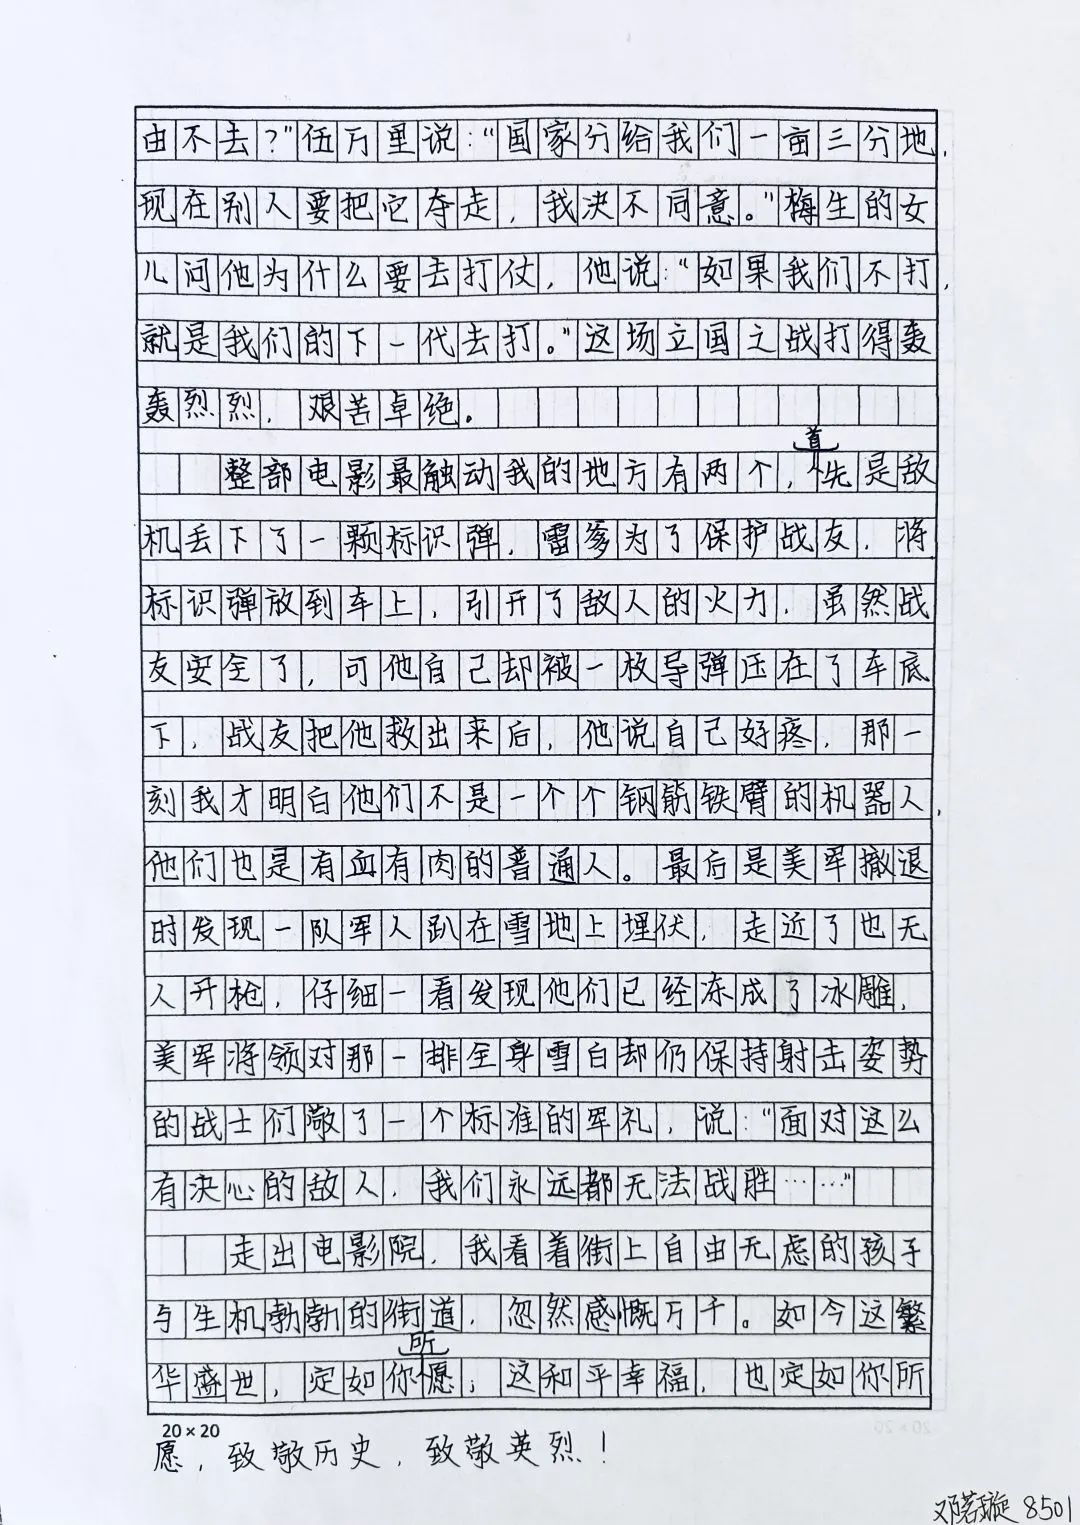 由不去？"伍万里说："国家分给我们一亩三分地，
现在别人要把它夺走，我决不同意。"梅生的女
儿问他为什么要去打仗，他说："如果我们不打，
就是我们的下一代去打。"这场立国之战打得轰
轰烈烈，艰苦卓绝。
整部电影最触动我的地方有两个，首先是敌
机丢下了一颗标识弹，雷爹为了保护战友，将
标识弹放到车上，引开了敌人的火力，虽然战
友安全了，可他自己却被一枚导弹压在了车底
下，战友把他救出来后，他说自己好疼，那一
刻我才明白他们不是一个个钢筋铁臂的机器人，
他们也是有血有肉的普通人。最后是美军撤退
时发现一队军人趴在雪地上埋伏，走近了也无
人开枪，仔细一看发现他们已经冻成了冰雕，
美军将领对那一排全身雪白却仍保持射击姿势
的战士们敬了一个标准的军礼，说："面对这么
有决心的敌人，我们永远都无法战胜……"
走出电影院，我看着街上自由无虑的孩子
与生机勃勃的街道，忽然感慨万千。如今这繁
华盛世，定如你所愿；这和平幸福，也定如你所
20×20
愿，致敬历史，致敬英烈！
邓茗璇 8501